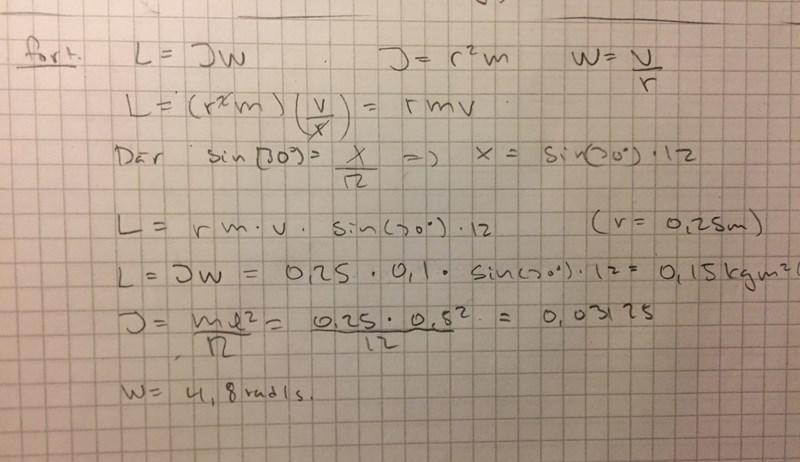 fort. L = Jω J = r²m ω = v/r
L = (r²m) (v/r) = rmv
Där sin(30°) = x/12 => x = sin(30°) · 12
L = r m · v · sin(30°) · 12 (r = 0,25m)
L = Jω = 0,25 · 0,1 · sin(30°) · 12 = 0,15 kgm²(
J = ml²/12 = 0,25 · 0,5²/12 = 0,03125
ω = 4,8 rad/s.